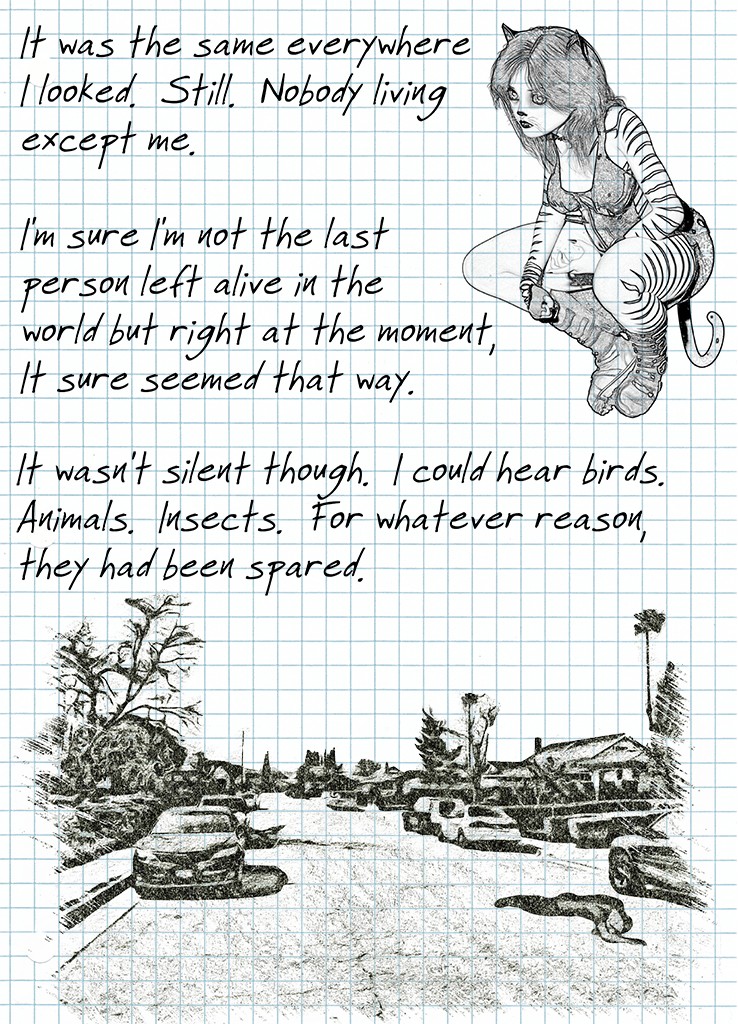 It was the same everywhere
I looked. Still. Nobody living
except me.
I'm sure I'm not the last
person left alive in the
world but right at the moment,
It sure seemed that way.
It wasn't silent though. I could hear birds.
Animals. Insects. For whatever reason,
they had been spared.